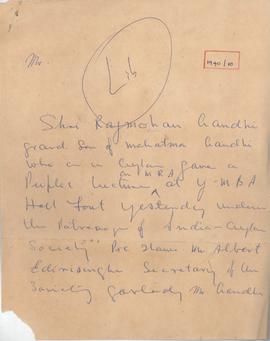 Mr.
Lib
1940/10
Shri Rajmohan Gandhi
grand son of mahatma Gandhi
who is in Ceylon gave a
on MRA
Public Lecture at Y-MBA
Hall Fort yesterday under
the Patronage of India-Ceylon
Society" Pic shows Mr Albert
Edirisinghe Secretary of the
Society garlady Mr Gandhi